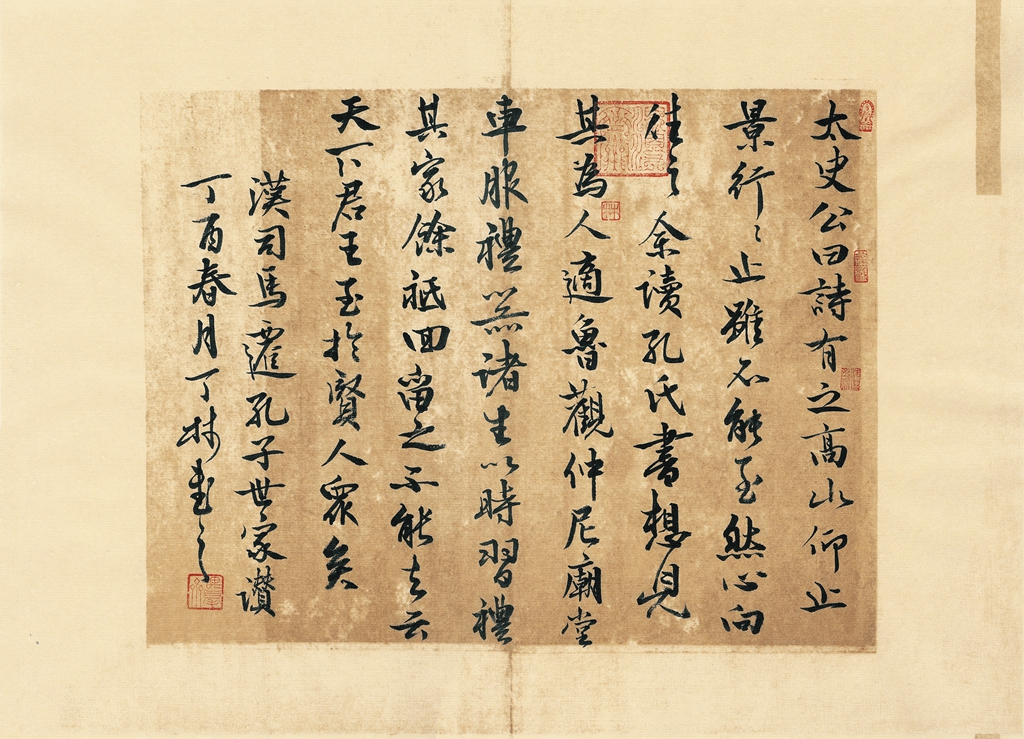 太史公曰詩有之高山仰止
景行〻止雖不能至然心向
往之余讀孔氏書想見
其為人適魯觀仲尼廟堂
車服禮器諸生以時習禮
其家余祗回留之不能去云
天下君王至於賢人眾矣
漢司馬遷孔子世家讚
丁酉春月丁林書之